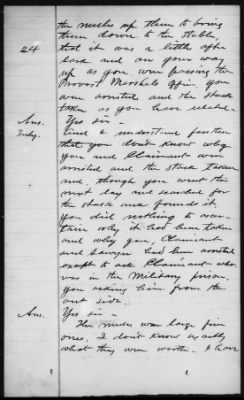 the mules up them to bring
them down to the stable,
24
that it was a little after
dark and on your way
up as you were passing the
Provost Marshals Office, you
were arrested and the stock
taken as you have related -
Ans. Yes sir -
And I understand further
that you don't know why
you and Claimant were
arrested and the stock taken
and, though you went the
next day and searched for
the stock and found it,
you did nothing to ascer-
tain why it had been taken
and why you, Claimant
and Sawyer had been arrested
except to ask Claimant who
was in the Military prison
you asking him from the
out side.
Ans. Yes sir -
The mules were large fine
ones. I don't know exactly
what they were worth. I have